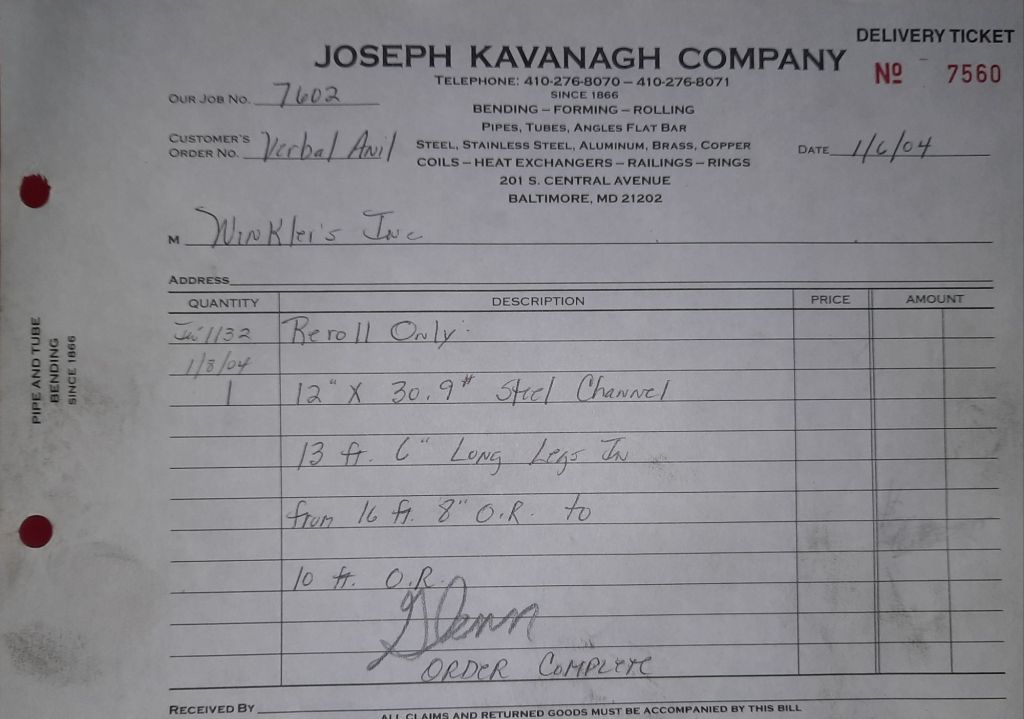 DELIVERY TICKET
JOSEPH KAVANAGH COMPANY
№ 7560
TELEPHONE: 410-276-8070 – 410-276-8071
SINCE 1866
OUR JOB NO. 7602
BENDING – FORMING – ROLLING
PIPES, TUBES, ANGLES FLAT BAR
CUSTOMER'S ORDER NO. Verbal Anil
STEEL, STAINLESS STEEL, ALUMINUM, BRASS, COPPER
DATE 1/6/04
COILS – HEAT EXCHANGERS – RAILINGS – RINGS
201 S. CENTRAL AVENUE
BALTIMORE, MD 21202
M Winkler's Inc
ADDRESS
QUANTITY DESCRIPTION PRICE AMOUNT
1132 Reroll Only
1/8/04
1 12" X 30.9# Steel Channel
13 ft. 6" Long Legs In
from 16 ft. 8" O.R. to
10 ft. O.R.
ORDER COMPLETE
RECEIVED BY
ALL CLAIMS AND RETURNED GOODS MUST BE ACCOMPANIED BY THIS BILL
PIPE AND TUBE
BENDING
SINCE 1866